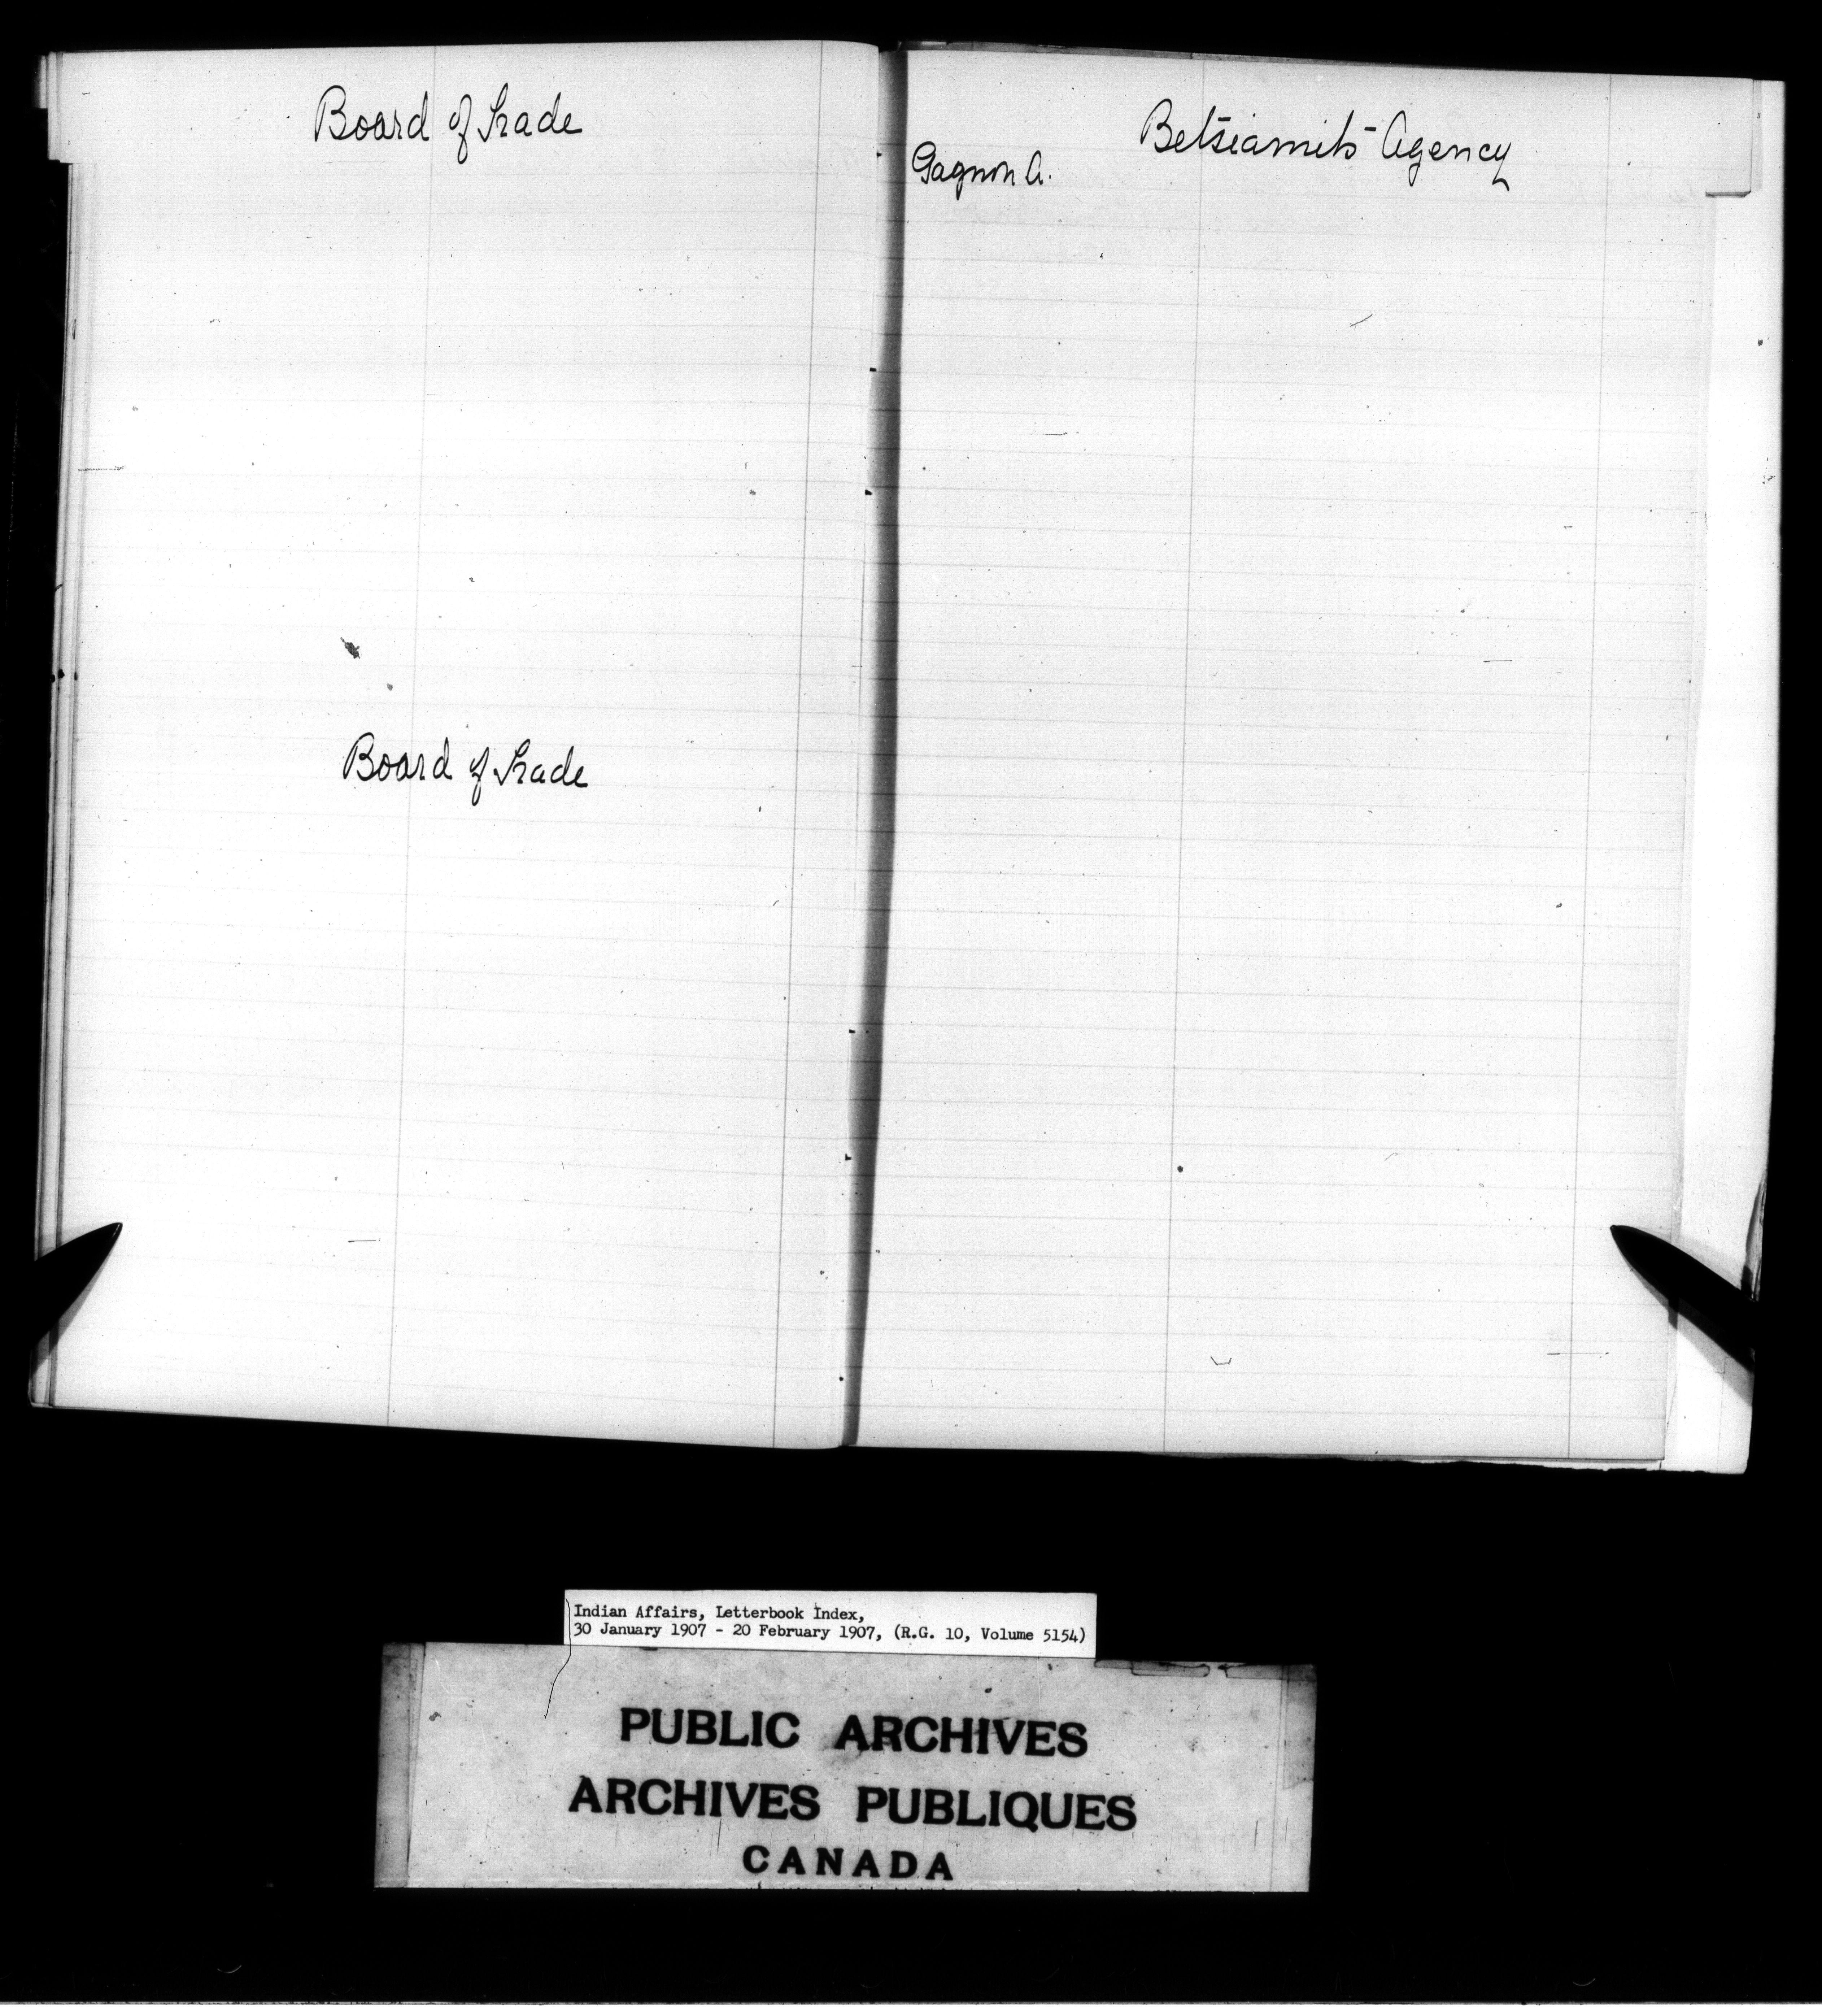 Board of Trade
Board of Trade
Betsiamits Agency
Gagnon A.
Indian Affairs, Letterbook Index,
30 January 1907 - 20 February 1907, (R.G. 10, Volume 5154)
PUBLIC ARCHIVES
ARCHIVES PUBLIQUES
CANADA